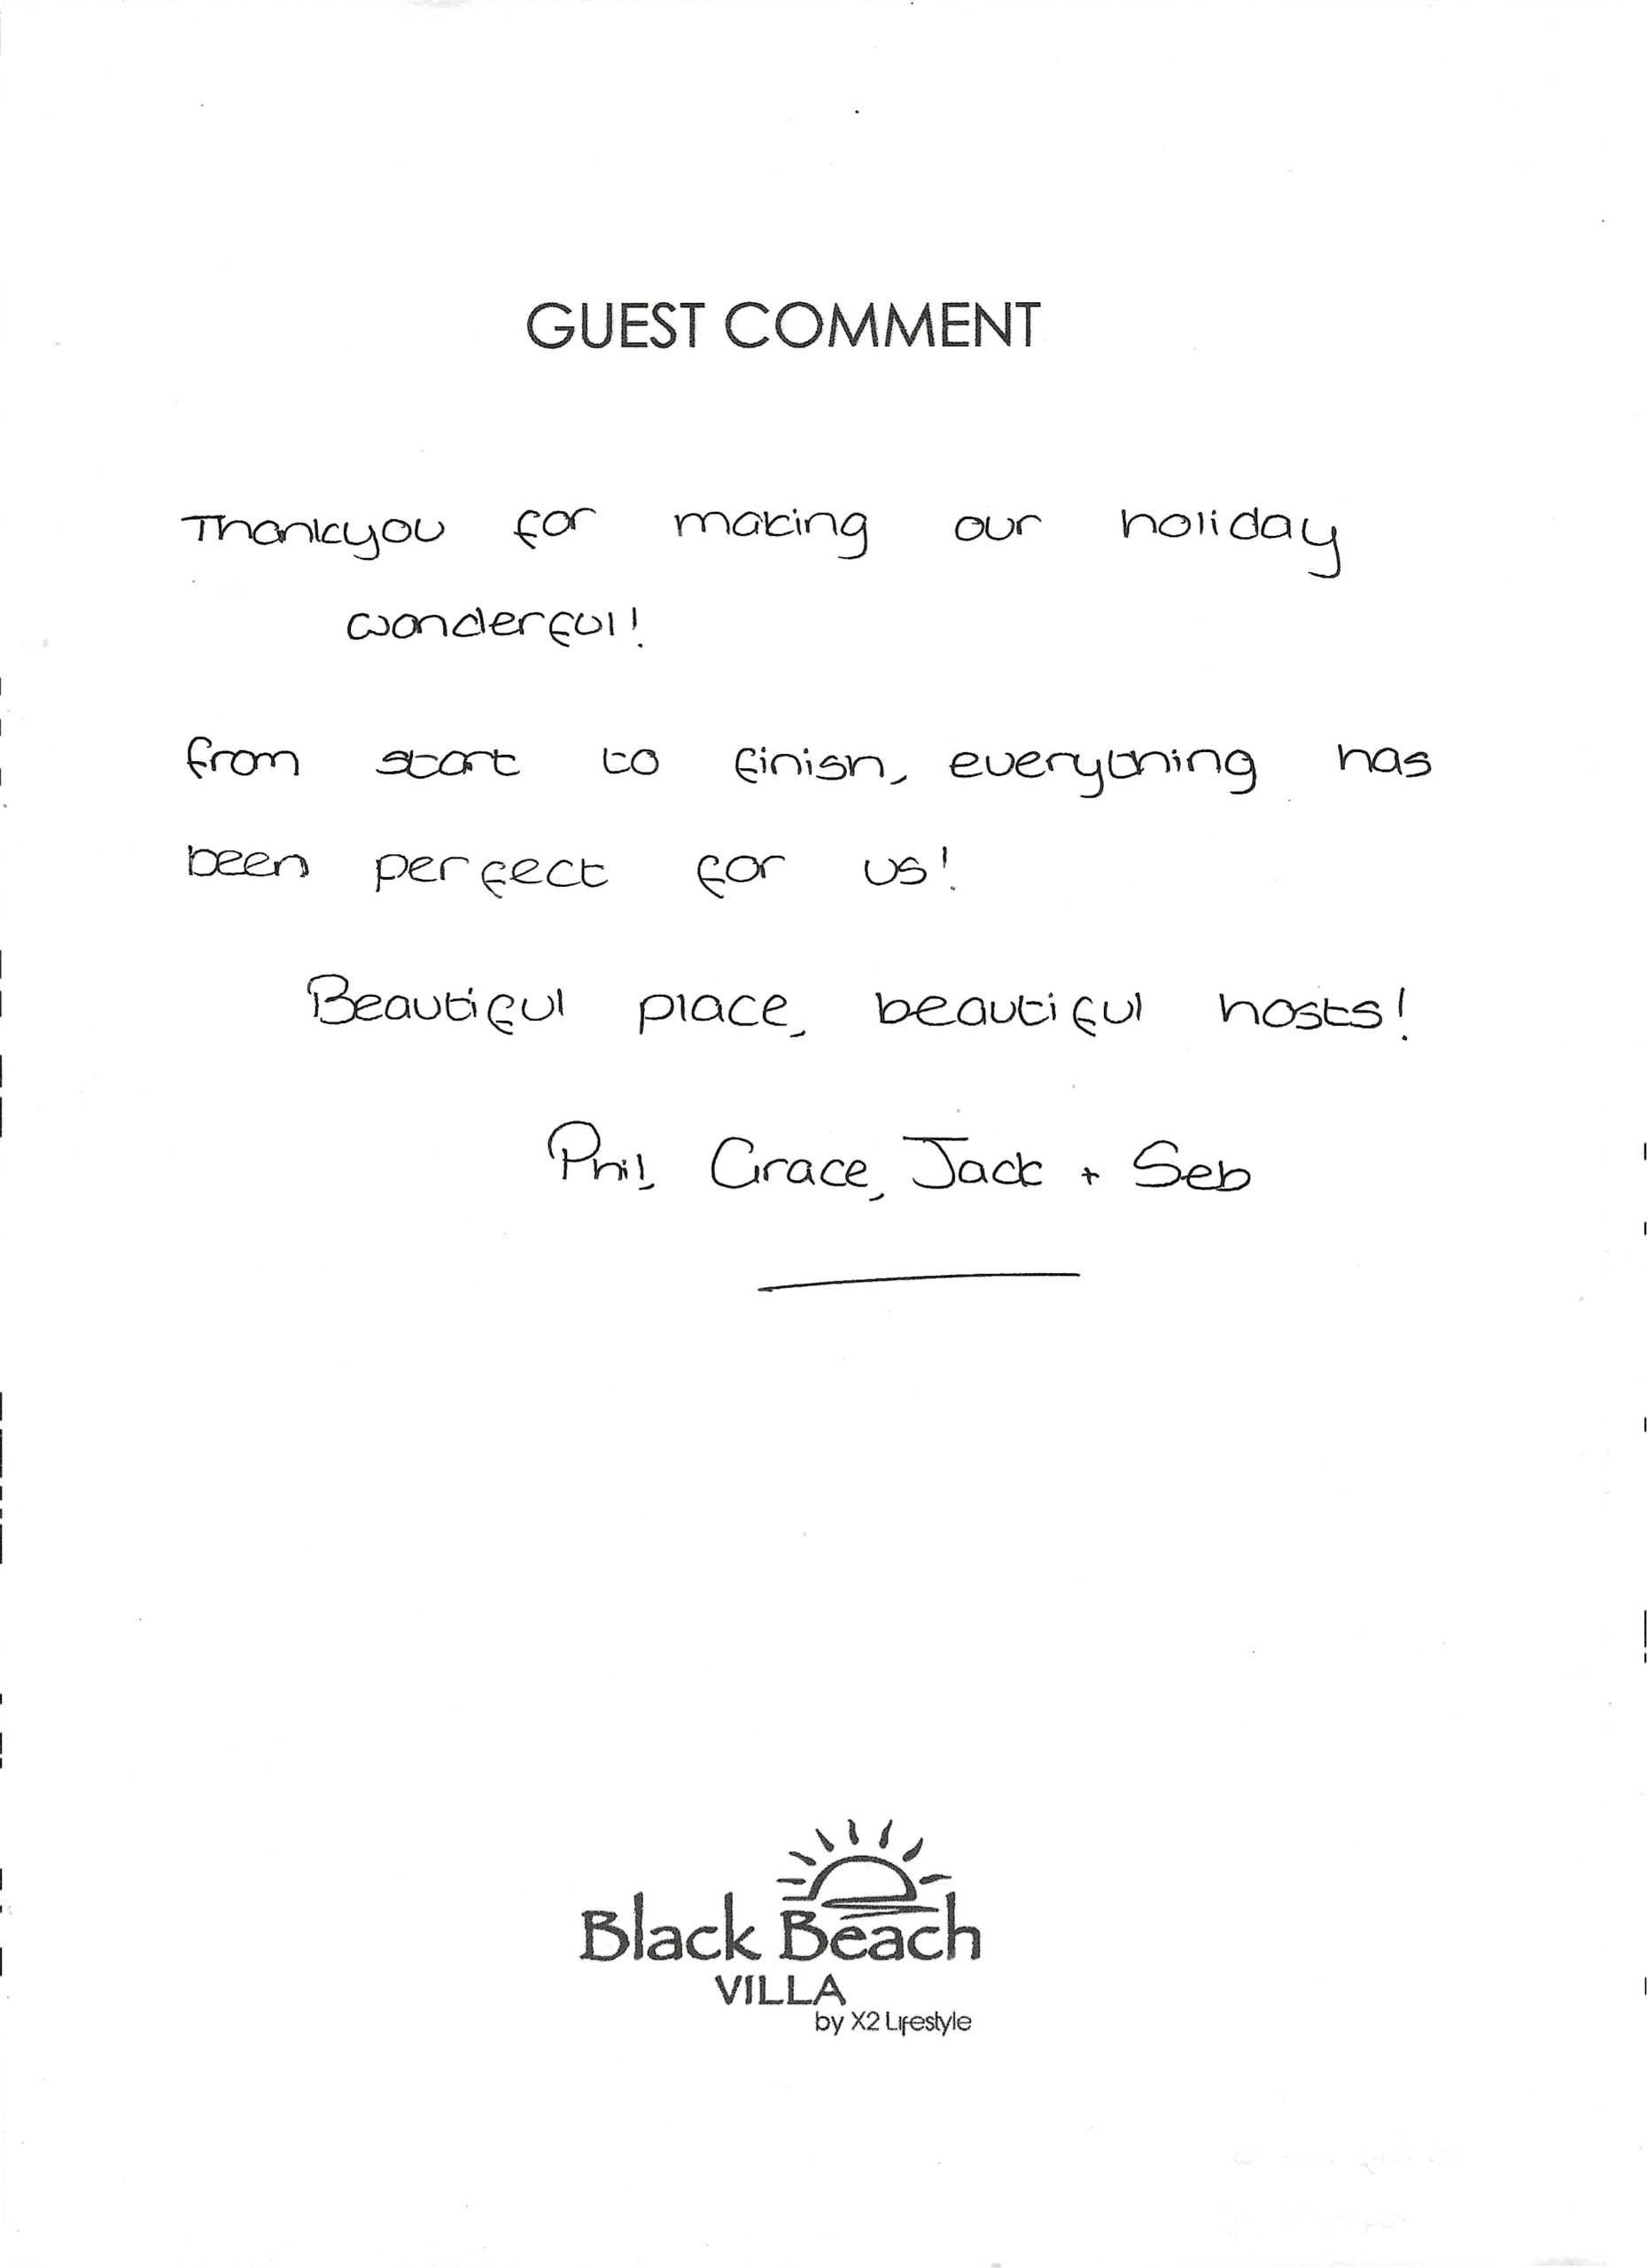 GUEST COMMENT
Thankyou for making our holiday
wonderful!
from start to finish, everything has
been perfect for us!
Beautiful place, beautiful hosts!
Phil, Grace, Jack + Seb
Black Beach
VILLA
by X2 Lifestyle